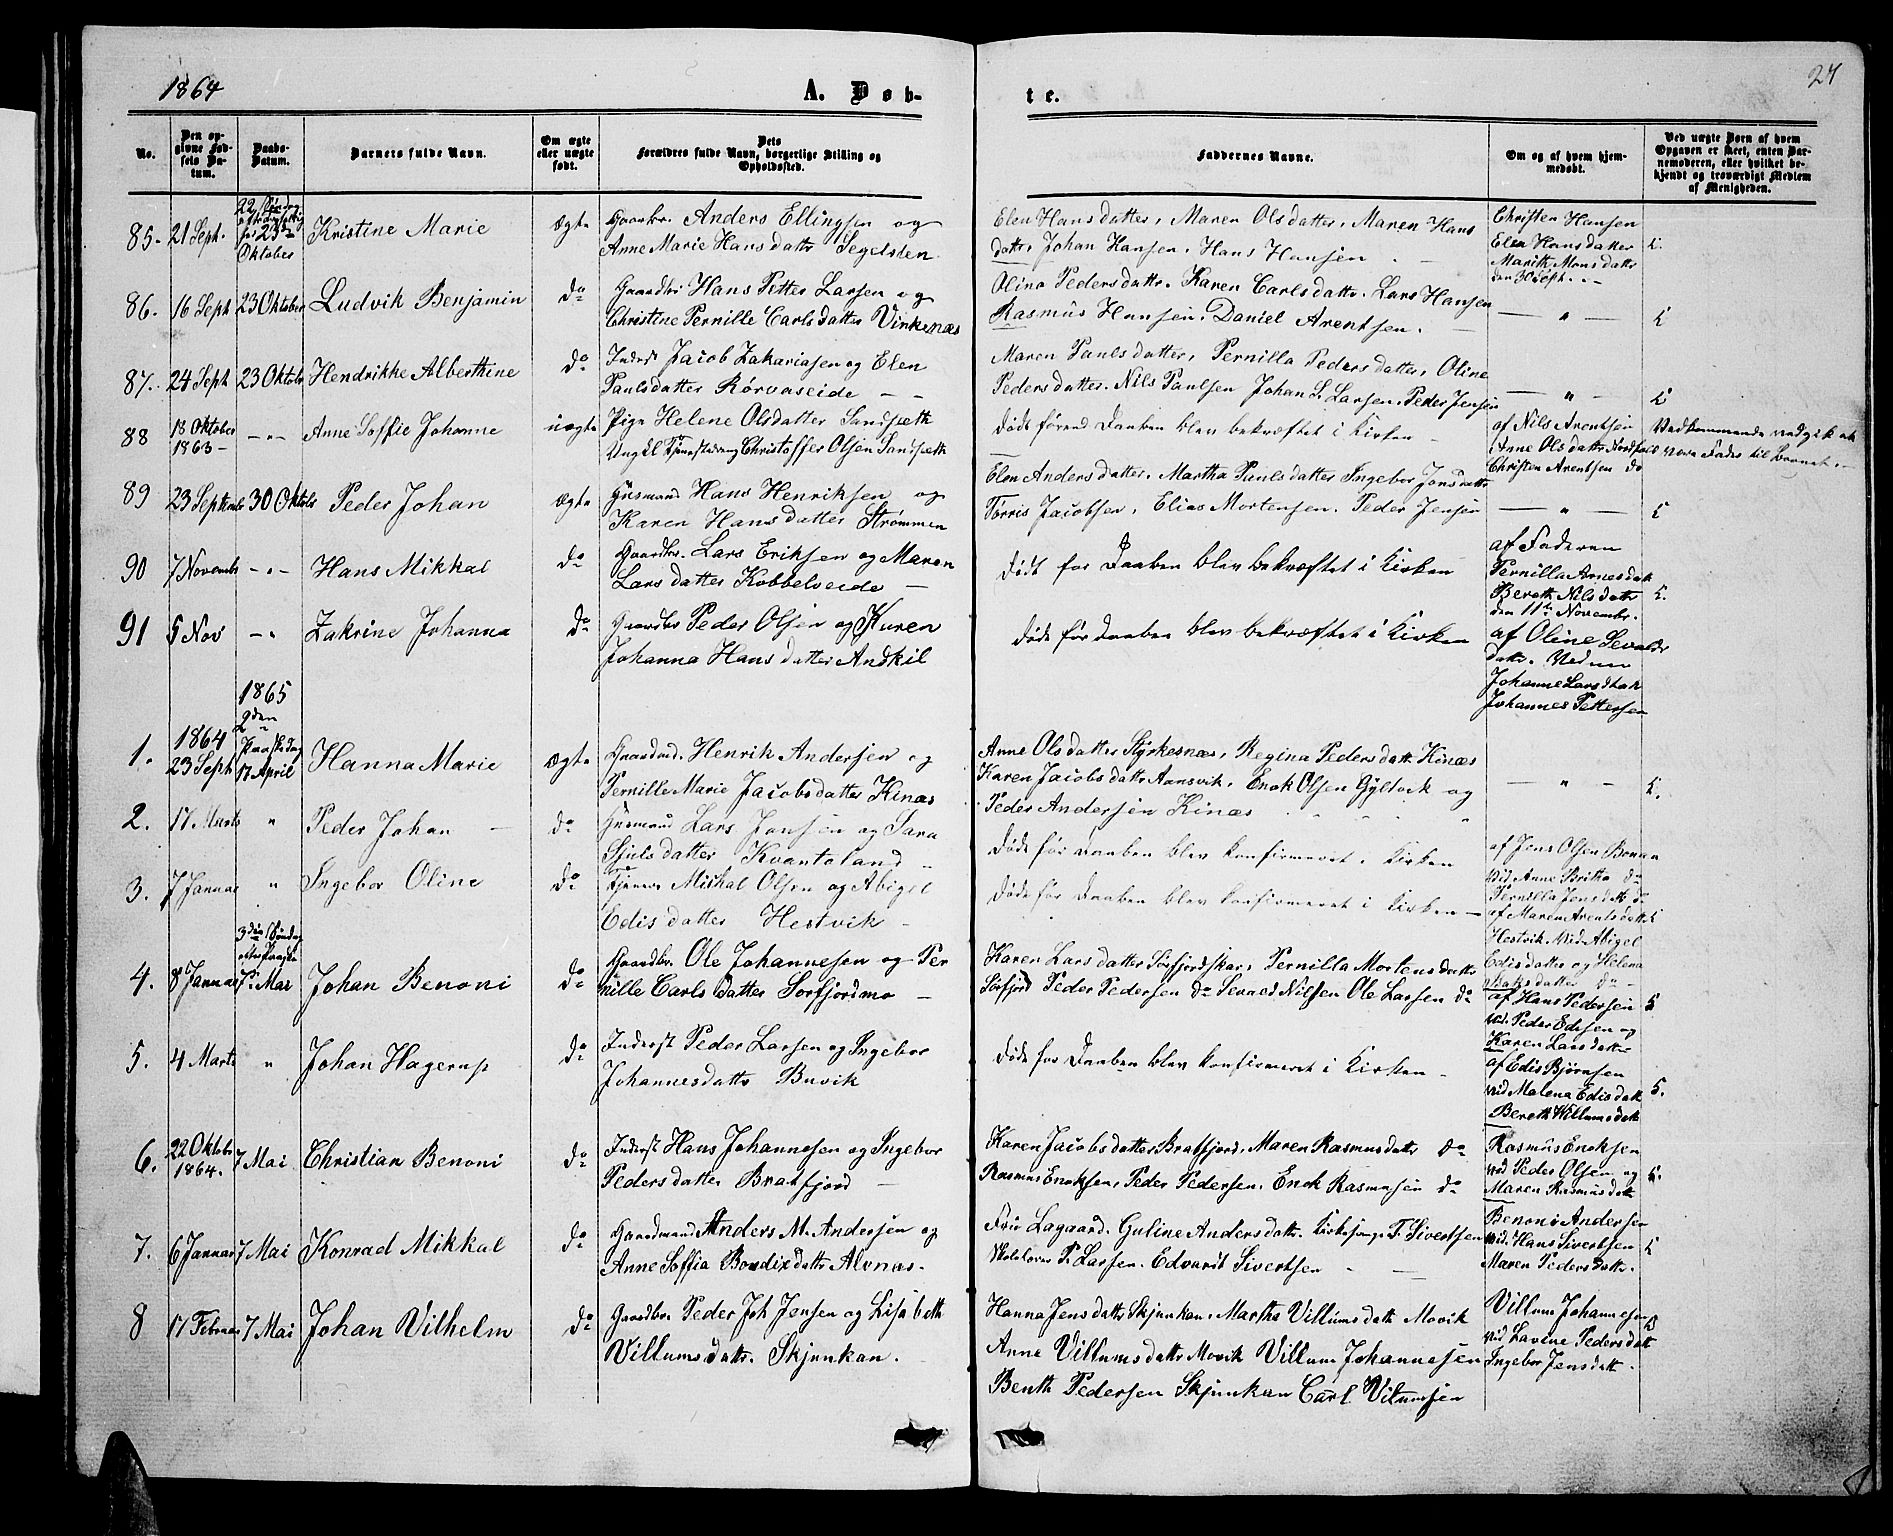 1864
A. Døb-
te.
27
No.
Den opgivne Fødsels Datum.
Daabs-Datum.
Barnets fulde Navn.
Om ægte eller uægte født.
Dets Forældres fulde Navn, borgerlige Stilling og Opholdssted.
Faddernes Navne.
Om og af hvem hjemmedøbt.
Ved uægte Børn af hvem Opgaven er skeet, enten Barnemoderen, eller hvilket bekjendt og troværdigt Medlem af Menigheden.
85. 21 Sept. 23 Oktober Kristine Marie ægte Gaardbr. Anders Ellingsen og
Anne Marie Hansdatter Segelsten
Elen Hansdatter, Maren Olsdatter, Maren Hans
datter, Johan Hansen, Hans Hansen
Christen Hansen
Elen Hansdatter
Marith Monsdattr
den 30 Sept.
86. 16 Sept 23 Oktober Ludvik Benjamin do Gaardbr Hans Petter Larsen og
Christine Pernille Carlsdatter Vinkenæs
Olina Pedersdattr. Karen Carlsdattr. Lars Hansen
Rasmus Hansen. Daniel Arentsen.
— " —
87. 24 Sept 23 Oktobr Hendrikke Alberthine do Inderst Jacob Zakariasen og Elen
Paulsdatter Rørvaseide
Maren Paulsdatter, Pernilla Pedersdatter, Oline
Pedersdatter. Nils Paulsen Johan L. Larsen. Peder Jensen
— " —
88 18 Oktober 1863 — " — Anne Soffie Johanne uægte Pige Helene Olsdatter Sandsæth
Ungkl Tjenestedreng Christoffer Olsen Sandsæth
Døde førend Daaben blev bekræftet i Kirken
af Nils Arentsen
Anne Olsdatter Nordfold
Christen Arentsen do
Vedkommende vedgik at
være Fader til Barnet.
89 23 Septembr 30 Oktobr Peder Johan ægte Husmand Hans Henriksen og
Karen Hansdatter Strømmen
Elen Andersdatter, Martha Paulsdatter Ingebor Jonsdattr
Tørris Jacobsen, Elias Mortensen. Peder Jensen
— " —
90 7 Novembr — " — Hans Mikkal do Gaardbr. Lars Eriksen og Maren
Larsdatter Kobbelveide
Dødt før Daaben blev bekræftet i Kirken
af Faderen
Pernilla Arnesdatt
Bereth Nilsdattr
den 11te November.
91 5 Nov — " Zakrine Johanna do Gaardbr Peder Olsen og Karen
Johanna Hansdatter Andkil
Døde før Daaben blev bekræftet i Kirken
af Oline Sevalds
dattr. Vidner
Johanne Larsdtatr
Johannes Pettersen
1865
1. 1864 23 Sept 2den Paaskedag 17 April Hanna Marie ægte Gaardmd. Henrik Andersen og
Pernille Marie Jacobsdatter Kinæs
Anne Olsdatter Styrkesnæs, Regina Pedersdattr Kinæs
Karen Jacobsdattr Aansvik. Enok Olsen Gyltvik og
Peder Andersen Kinæs
— " —
2. 17 Marts " Peder Johan do Husmand Lars Jonsen og Sara
Sjulsdatter Kvantoland
Døde før Daaben blev konfirmeret i Kirken
af Jens Olsen Bonaa
Vid. Anne Britha do
Pernilla Jensdattr do
3. 7 Januar " Ingebor Oline do Mikal Olsen og Abigel
Edisdatter Hestvik
Døde før Daaben blev konfirmeret i Kirken
af Maren Arentsdatter
Hestvik Vid. Abigel
Edisdatter og Helena
4. 8 Januar 3die Søndag efter Paaske 7de Mai Johan Benoni do Gaardbr. Ole Johannesen og Per
nille Carlsdatter Sørfjordmo
Karen Larsdatter Sørfjordskar, Pernilla Mortensdattr
Sørfjord Peder Pedersen do Sevald Nilsen Ole Larsen do
af Hans Pedersen
vid. Peder Edisen og
Karen Larsdatter
5. 4 Marts " Johan Hagerup do Inderst Peder Larsen og Ingebor
Johannesdattr Buvik
Døde før Daaben blev konfirmeret i Kirken
af Edis Bjørnsen
vid Malena Edisdatt
Bereth Willumsdatt
6. 22 Oktobr 1864. 7 Mai Christian Benoni do Inderst Hans Johannesen og Ingebor
Pedersdatter Bratfjord
Karen Jacobsdatter Bratfjord. Maren Rasmusdattr do
Rasmus Enoksen, Peder Pedersen. Enok Rasmusen do
Rasmus Enoksen
vid Peder Olsen og
Maren Rasmusdatt
7. 6 Januar 7 Mai Konrad Mikkal do Gaardmand Anders M. Andersen og
Anne Soffia Bendixdattr Alvnæs
Fru Lagaard. Guline Andersdattr. Kirkesangr T. Sivertsen
P. Larsen. Edvard Sivertsen
Benoni Andersen
vid. Hans Sivertsen
Maren Pedersdattr.
8 17 Februar 7 Mai Johan Vilhelm do Gaardbr. Peder Joh Jensen og Lisabeth
Villumsdattr. Skjunkan.
Hanna Jensdattr Skjunkan. Martha Villumsdatt Movik
Anne Villumsdattr Movik Villum Johannesen
Benth Pedersen Skjunkan Carl Vilumsen
Villum Johannesen
vid Lavine Pedersdatt
Ingebor Jensdatt.